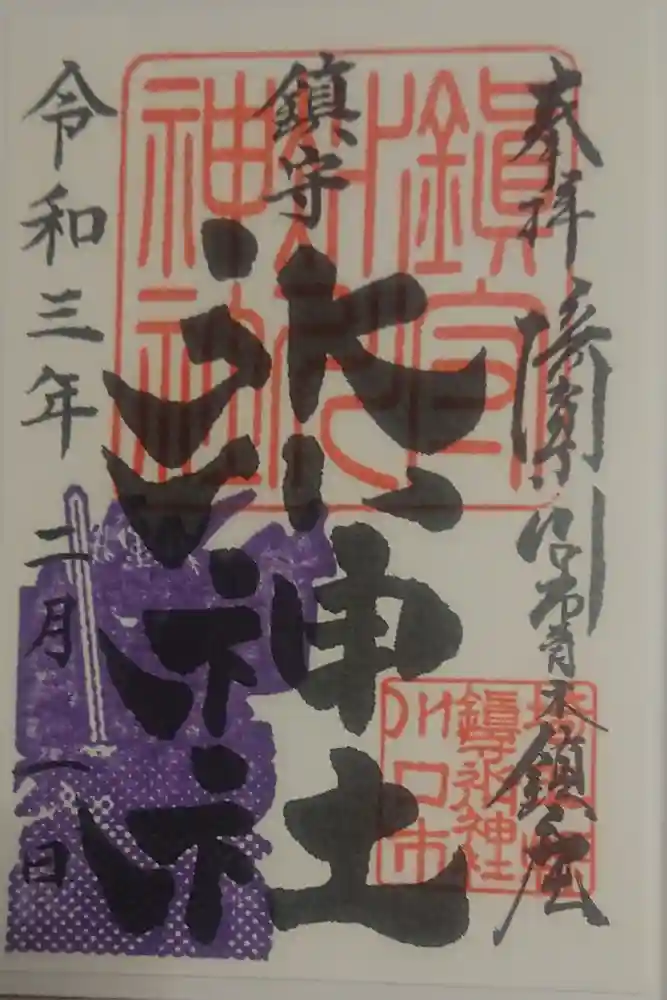 奉拝
埼玉県川口市青木鎮座
鎮守
氷川神社
令和三年二月一日
鎮守
氷川
神社
埼玉県
鎮守氷川神社
川口市